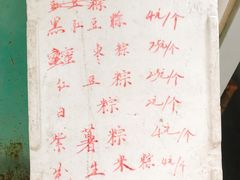 豆粽
黑红豆粽 4元/个
蜜枣粽 2.5元/个
红豆粽 2.5元/个
白粽 2元/个
紫薯粽 4元/个
花生米粽 4元/个